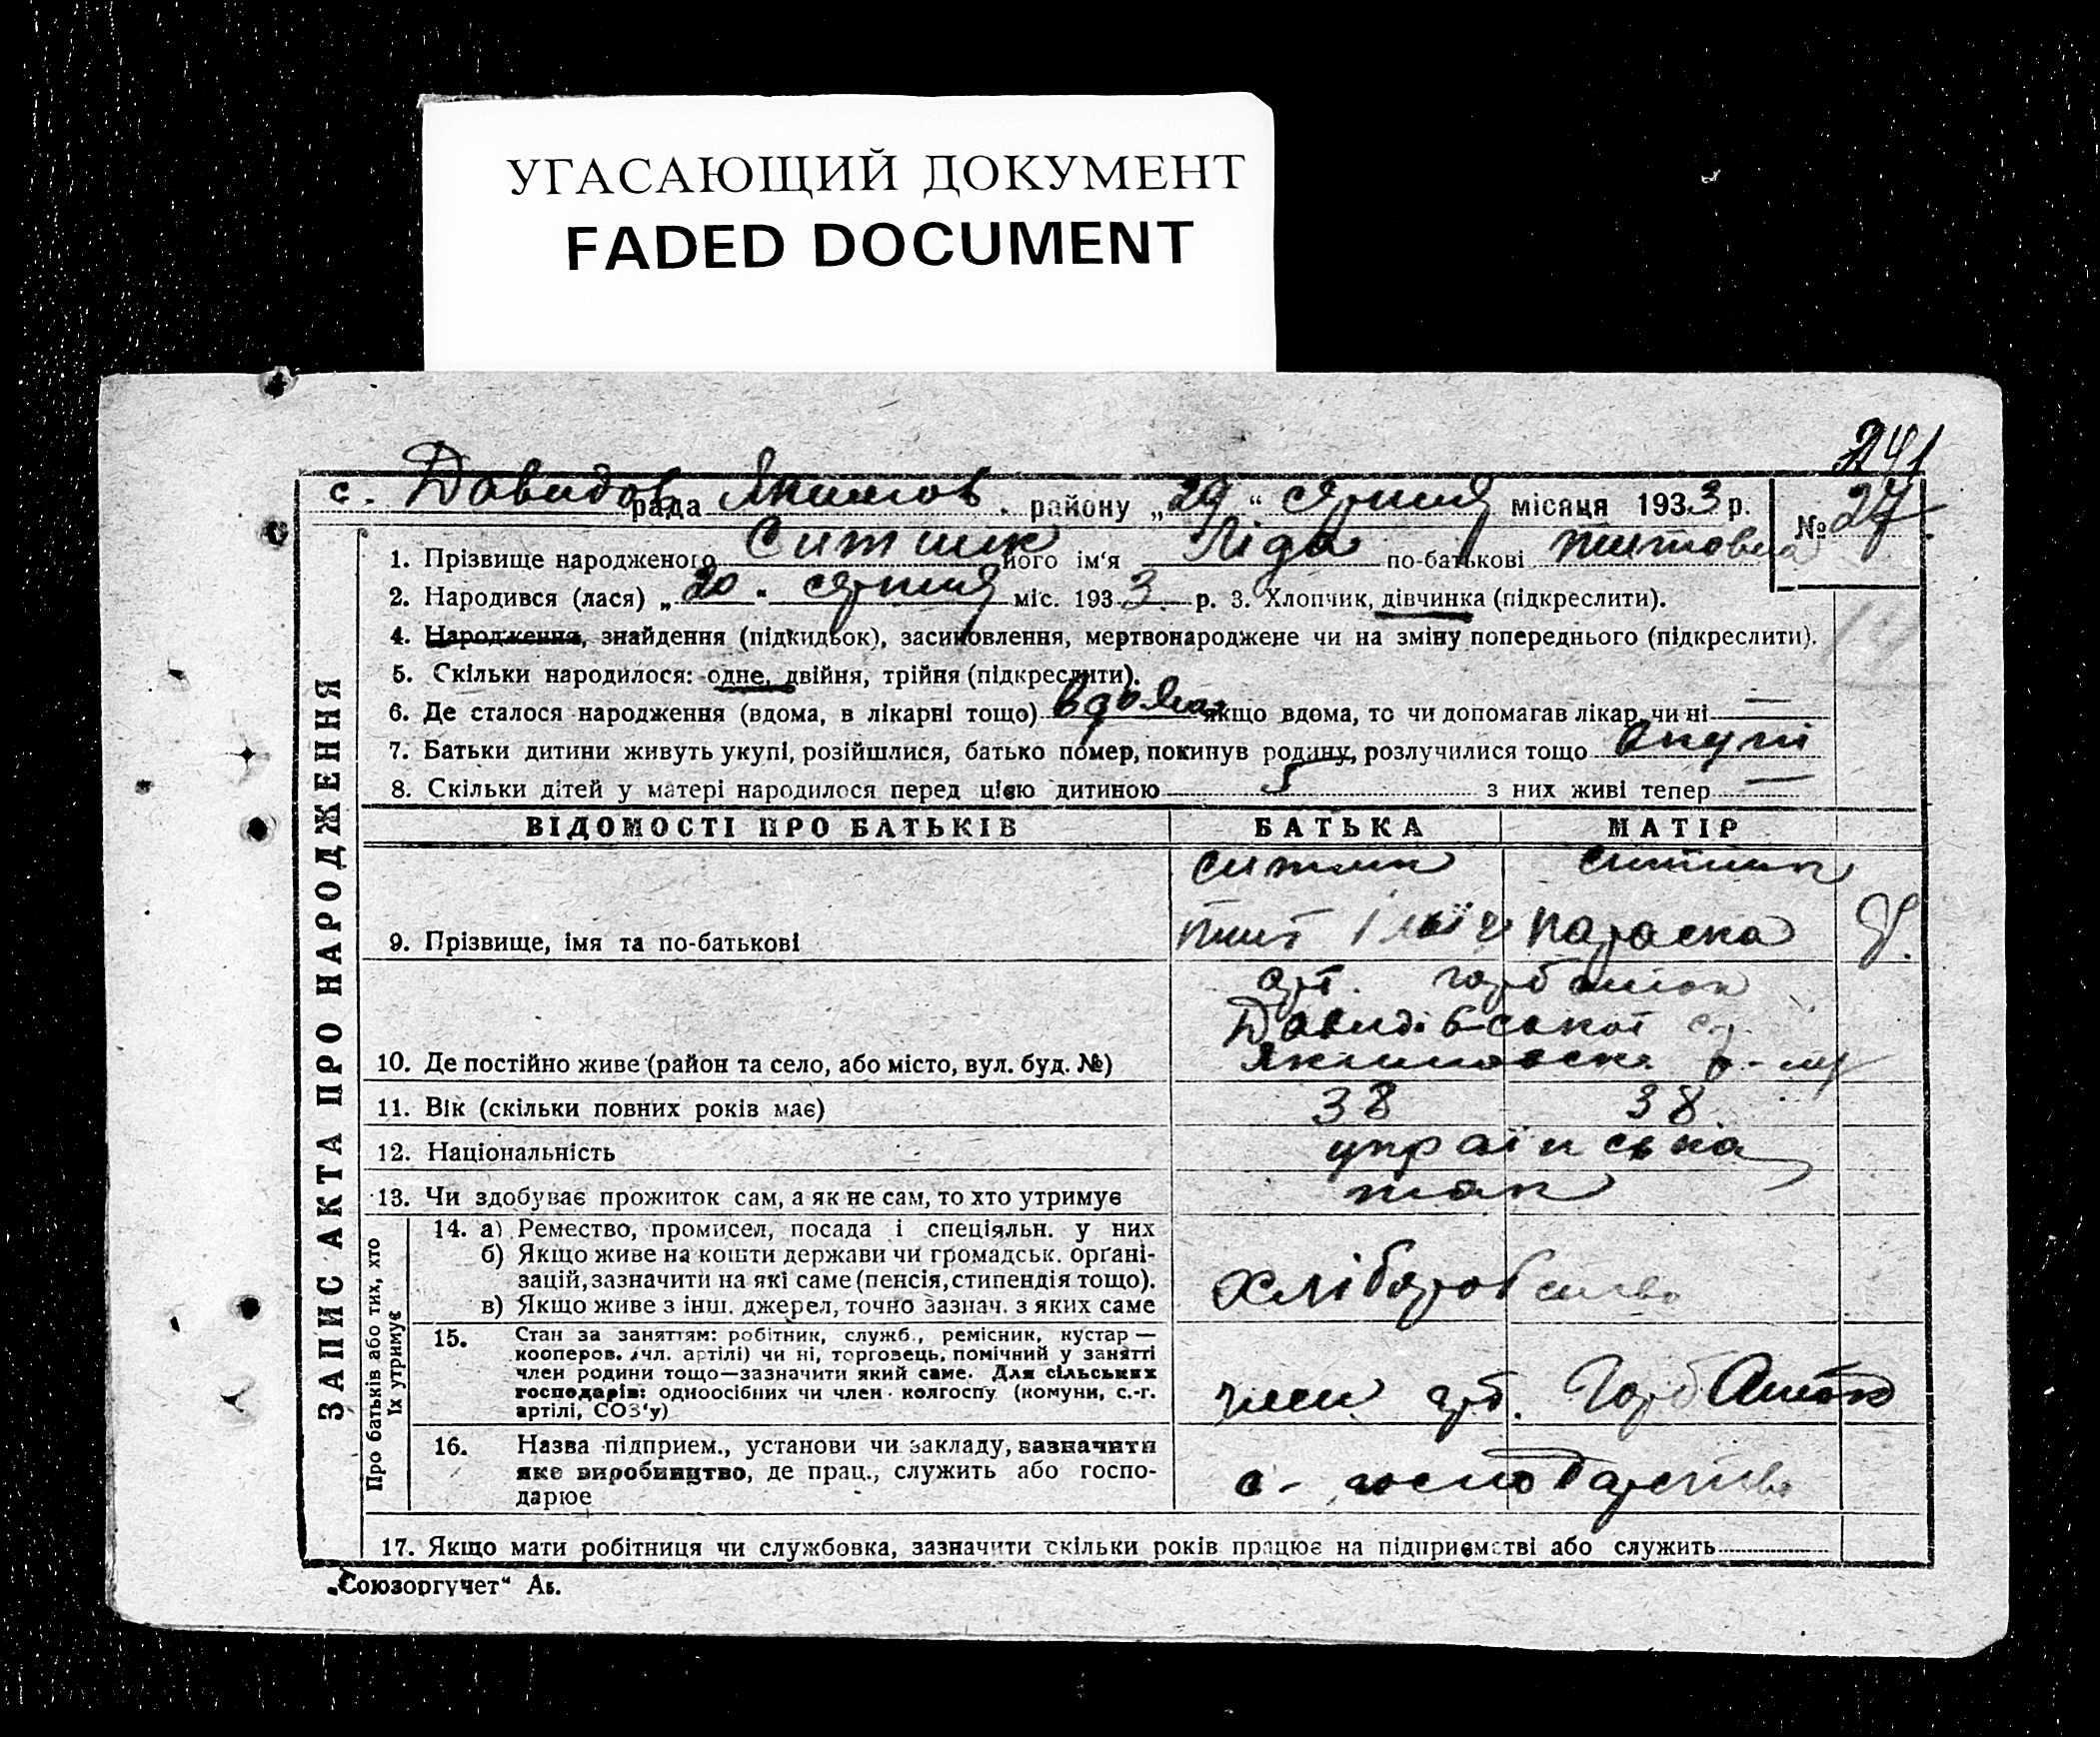 УГАСАЮЩИЙ ДОКУМЕНТ
FADED DOCUMENT
241
с. Давидов рада Якимов. району „29“ серпня місяця 1933 р. № 27
ЗАПИС АКТА ПРО НАРОДЖЕННЯ
1. Прізвище народженого Ситник його ім'я Ліда по-батькові Титовна
2. Народився (лася) „20“ серпня міс. 1933 р. 3. Хлопчик, дівчинка (підкреслити).
4. Народження, знайдення (підкидьок), засиновлення, мертвонароджене чи на зміну попереднього (підкреслити).
5. Скільки народилося: одне, двійня, трійня (підкреслити).
6. Де сталося народження (вдома, в лікарні тощо) вдома якщо вдома, то чи допомагав лікар, чи ні —
7. Батьки дитини живуть укупі, розійшлися, батько помер, покинув родину, розлучилися тощо вкупі
8. Скільки дітей у матері народилося перед цією дитиною 5 з них живі тепер —
ВІДОМОСТІ ПРО БАТЬКІВ БАТЬКА МАТІР
Ситник Ситник
9. Прізвище, імя та по-батькові Тит Ілліч Параска
арт.
Давидівської с/р
10. Де постійно живе (район та село, або місто, вул. буд. №) Якимовськ. р-ну
11. Вік (скільки повних років має) 38 38
12. Національність українська
13. Чи здобуває прожиток сам, а як не сам, то хто утримує так
Про батьків або тих, хто їх утримує
14. а) Ремество, промисел, посада і спеціяльн. у них
б) Якщо живе на кошти держави чи громадськ. органі-
зацій, зазначити на які саме (пенсія, стипендія тощо).
в) Якщо живе з інш. джерел, точно зазнач. з яких саме
хліборобство
15. Стан за заняттям: робітник, служб., ремісник, кустар —
кооперов. (чл. артілі) чи ні, торговець, помічний у занятті
член родини тощо—зазначити який саме. Для сільських
господарів: одноосібних чи член колгоспу (комуни, с.-г.
артілі, СОЗ'у)
член арт.
16. Назва підприєм., установи чи закладу, зазначити
яке виробництво, де прац., служить або госпо-
дарює
с-господарство
17. Якщо мати робітниця чи службовка, зазначити скільки років працює на підприємстві або служить
„Союзоргучет“ Ав.